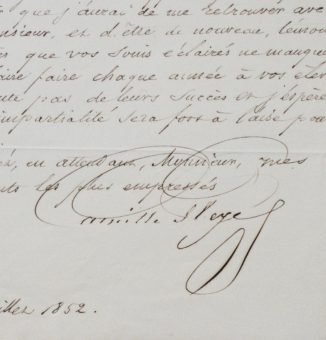 que j'aurai de me retrouver avec
nsieur, et d'être de nouveau, témoin
es que vos soins éclairés ne manque
aire faire chaque année à vos élèv
ute pas de leurs succès et j'espère
impartialité sera fort à l'aise pou
en attendant, Monsieur, mes
nts les plus empressés
Camille Pleyel
illet 1852.